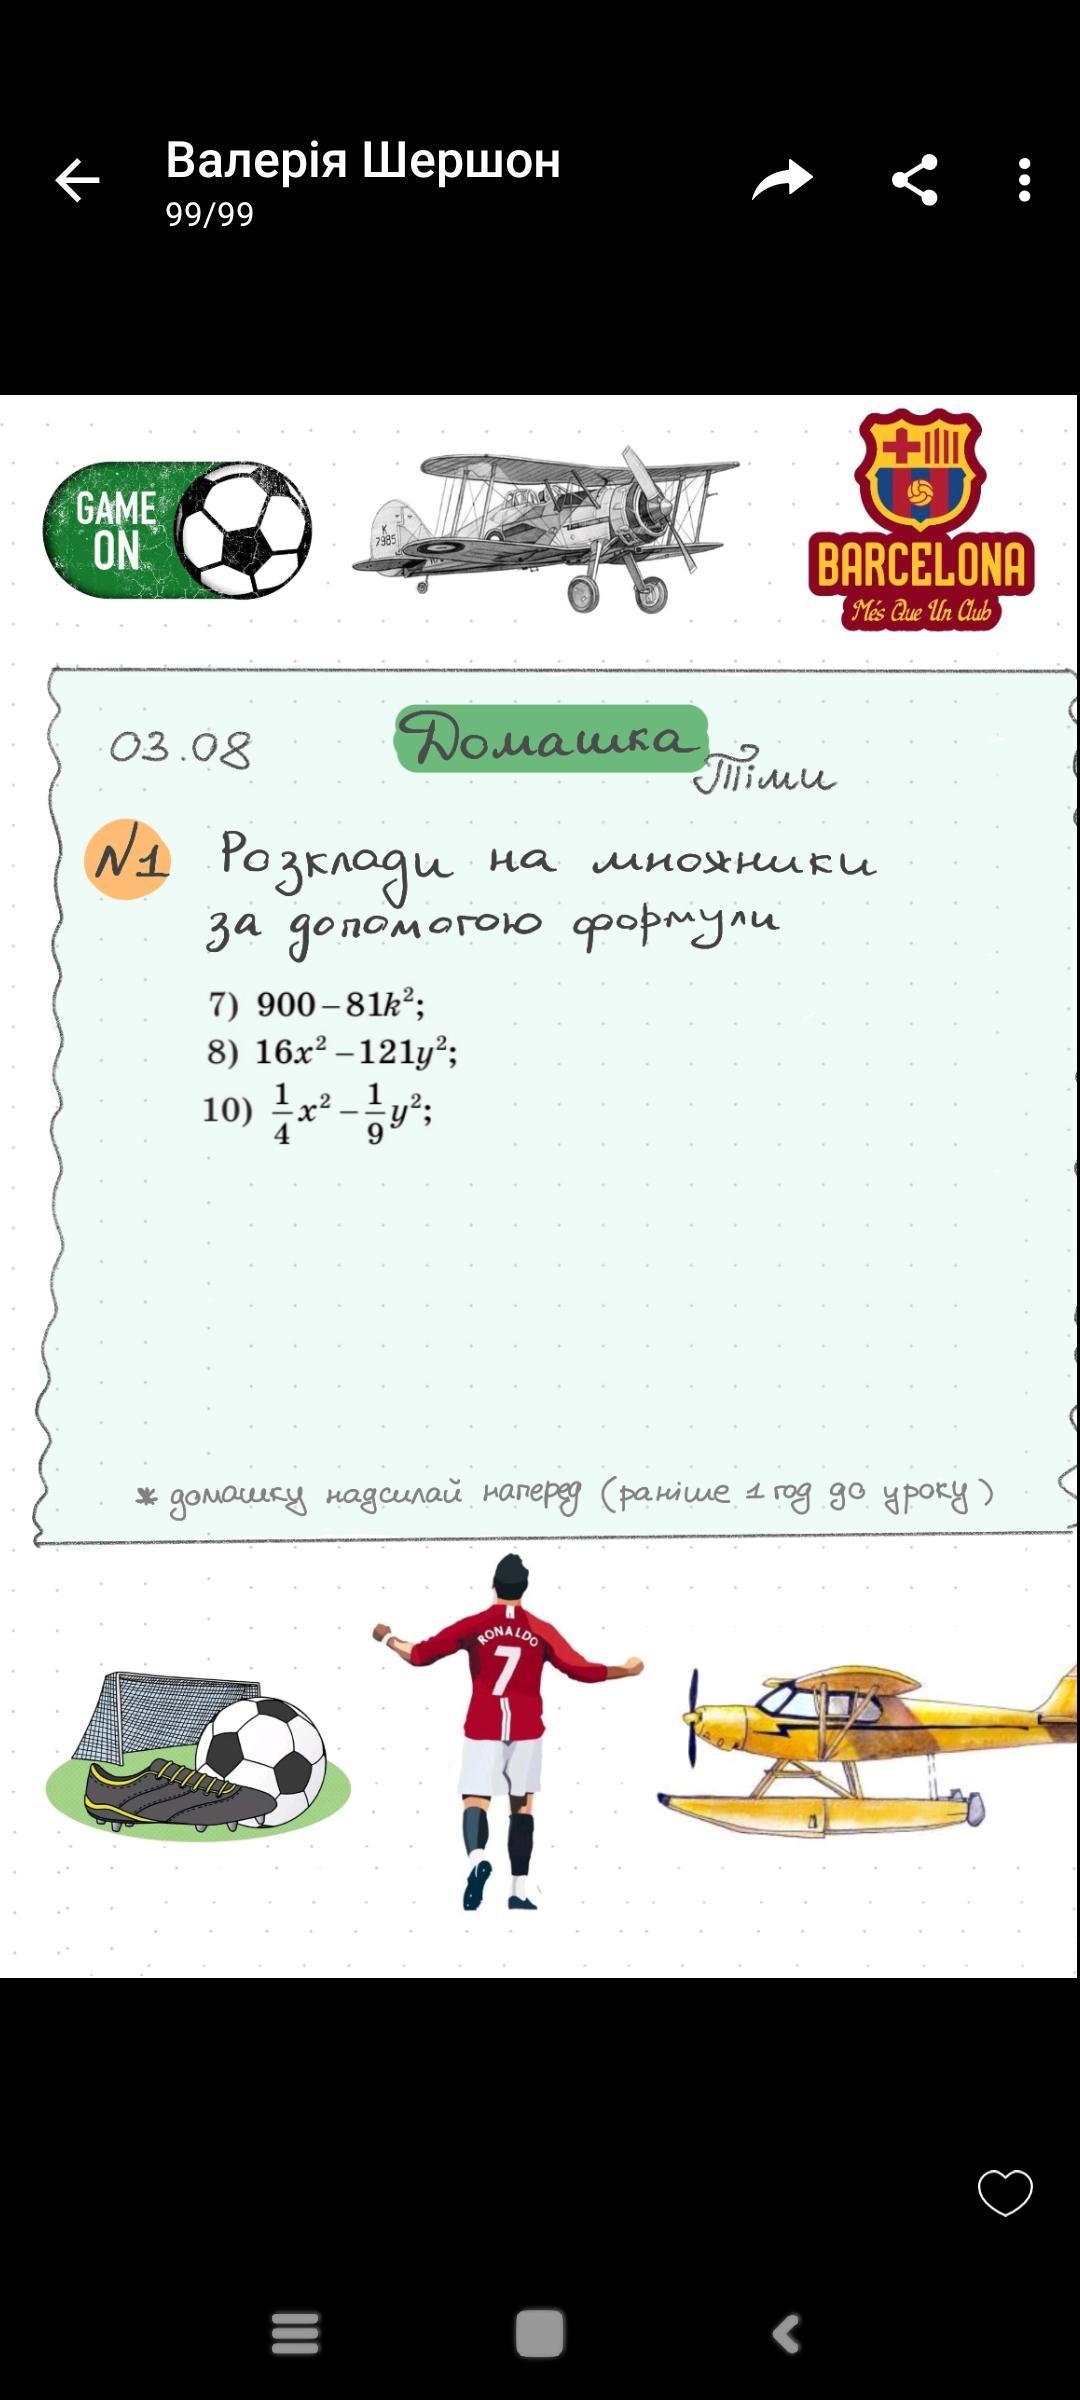 Валерія Шершон
99/99
GAME
ON
K
7985
BARCELONA
Més Que Un Club
03.08
Домашка
Тіми
№1 Розклади на множники
за допомогою формули
7) 900 – 81k²;
8) 16x² – 121y²;
10) 1/4 x² – 1/9 y²;
* домашку надсилай наперед (раніше 1 год до уроку)
RONALDO
7